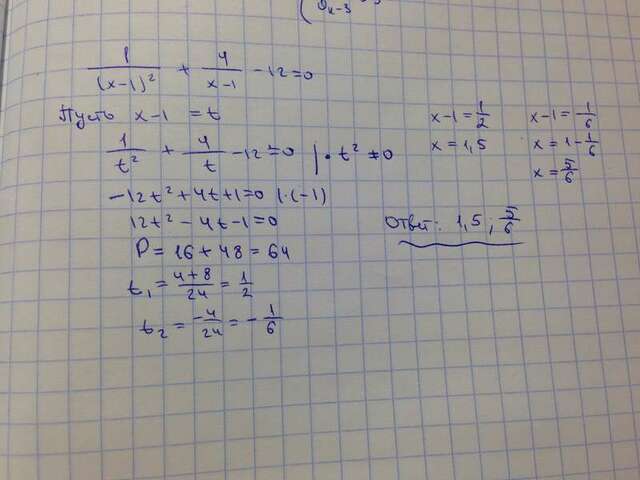 1/(x-1)² + 4/(x-1) -12=0
Пусть x-1 = t
1/t² + 4/t -12=0 | · t² ≠0
-12t² + 4t+1=0 |·(-1)
12t² - 4t-1=0
D = 16 + 48 = 64
t₁ = (4+8)/24 = 1/2
t₂ = -4/24 = - 1/6
x-1 = 1/2
x = 1,5
x-1 = - 1/6
x = 1 - 1/6
x = 5/6
Ответ: 1,5 ; 5/6